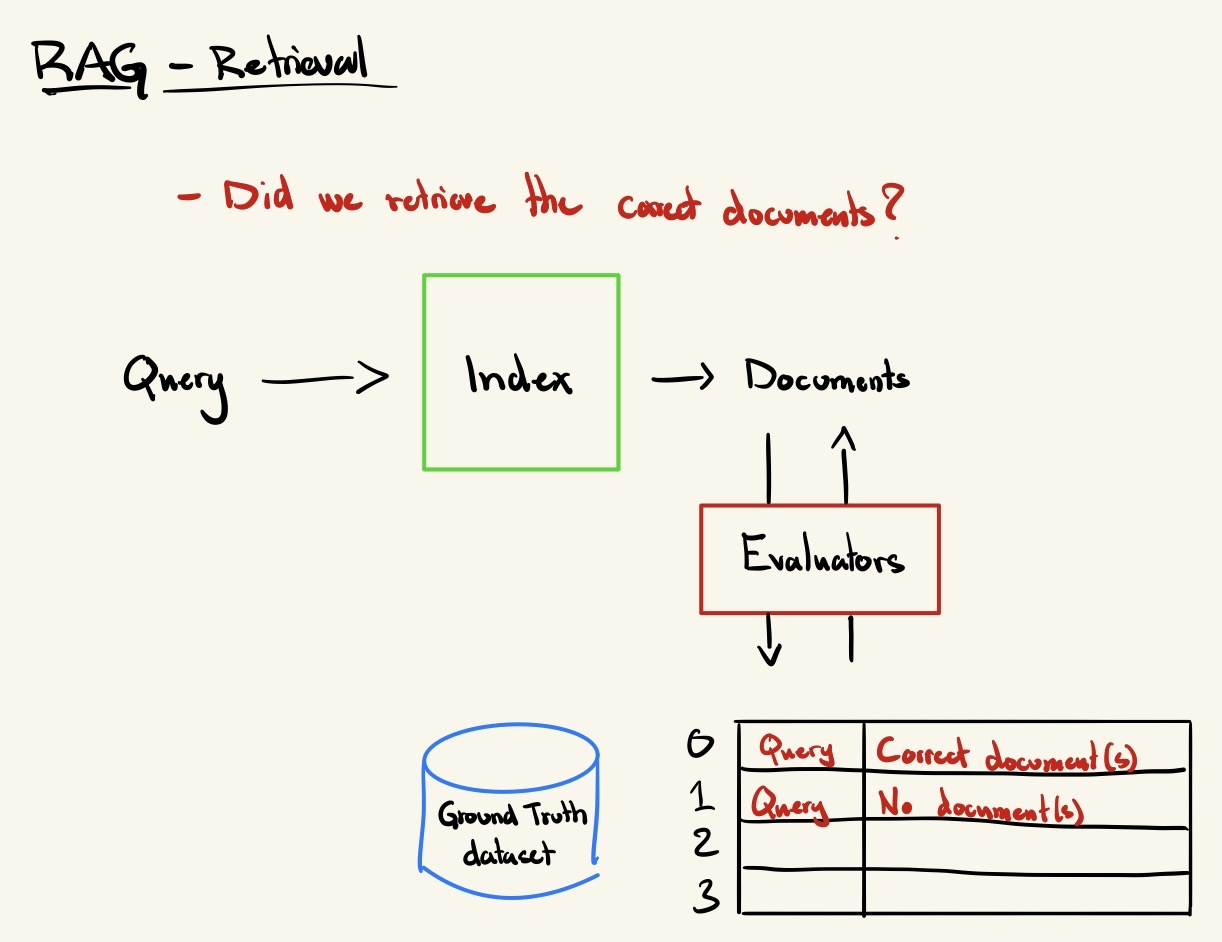 RAG - Retrieval
- Did we retrieve the correct documents?
Query
Index
Documents
Evaluators
Ground Truth
dataset
0 Query Correct document(s)
1 Query No document(s)
2
3